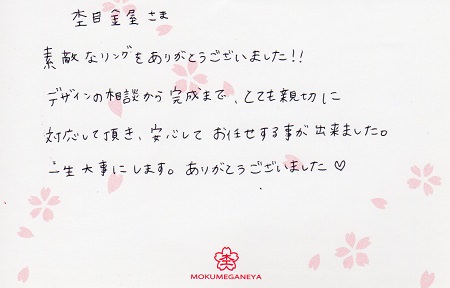 杢目金屋さま
素敵なリングをありがとうございました!!
デザインの相談から完成まで、とても親切に
対応して頂き、安心してお任せする事が出来ました。
一生大事にします。ありがとうございました♡
杢
MOKUMEGANEYA